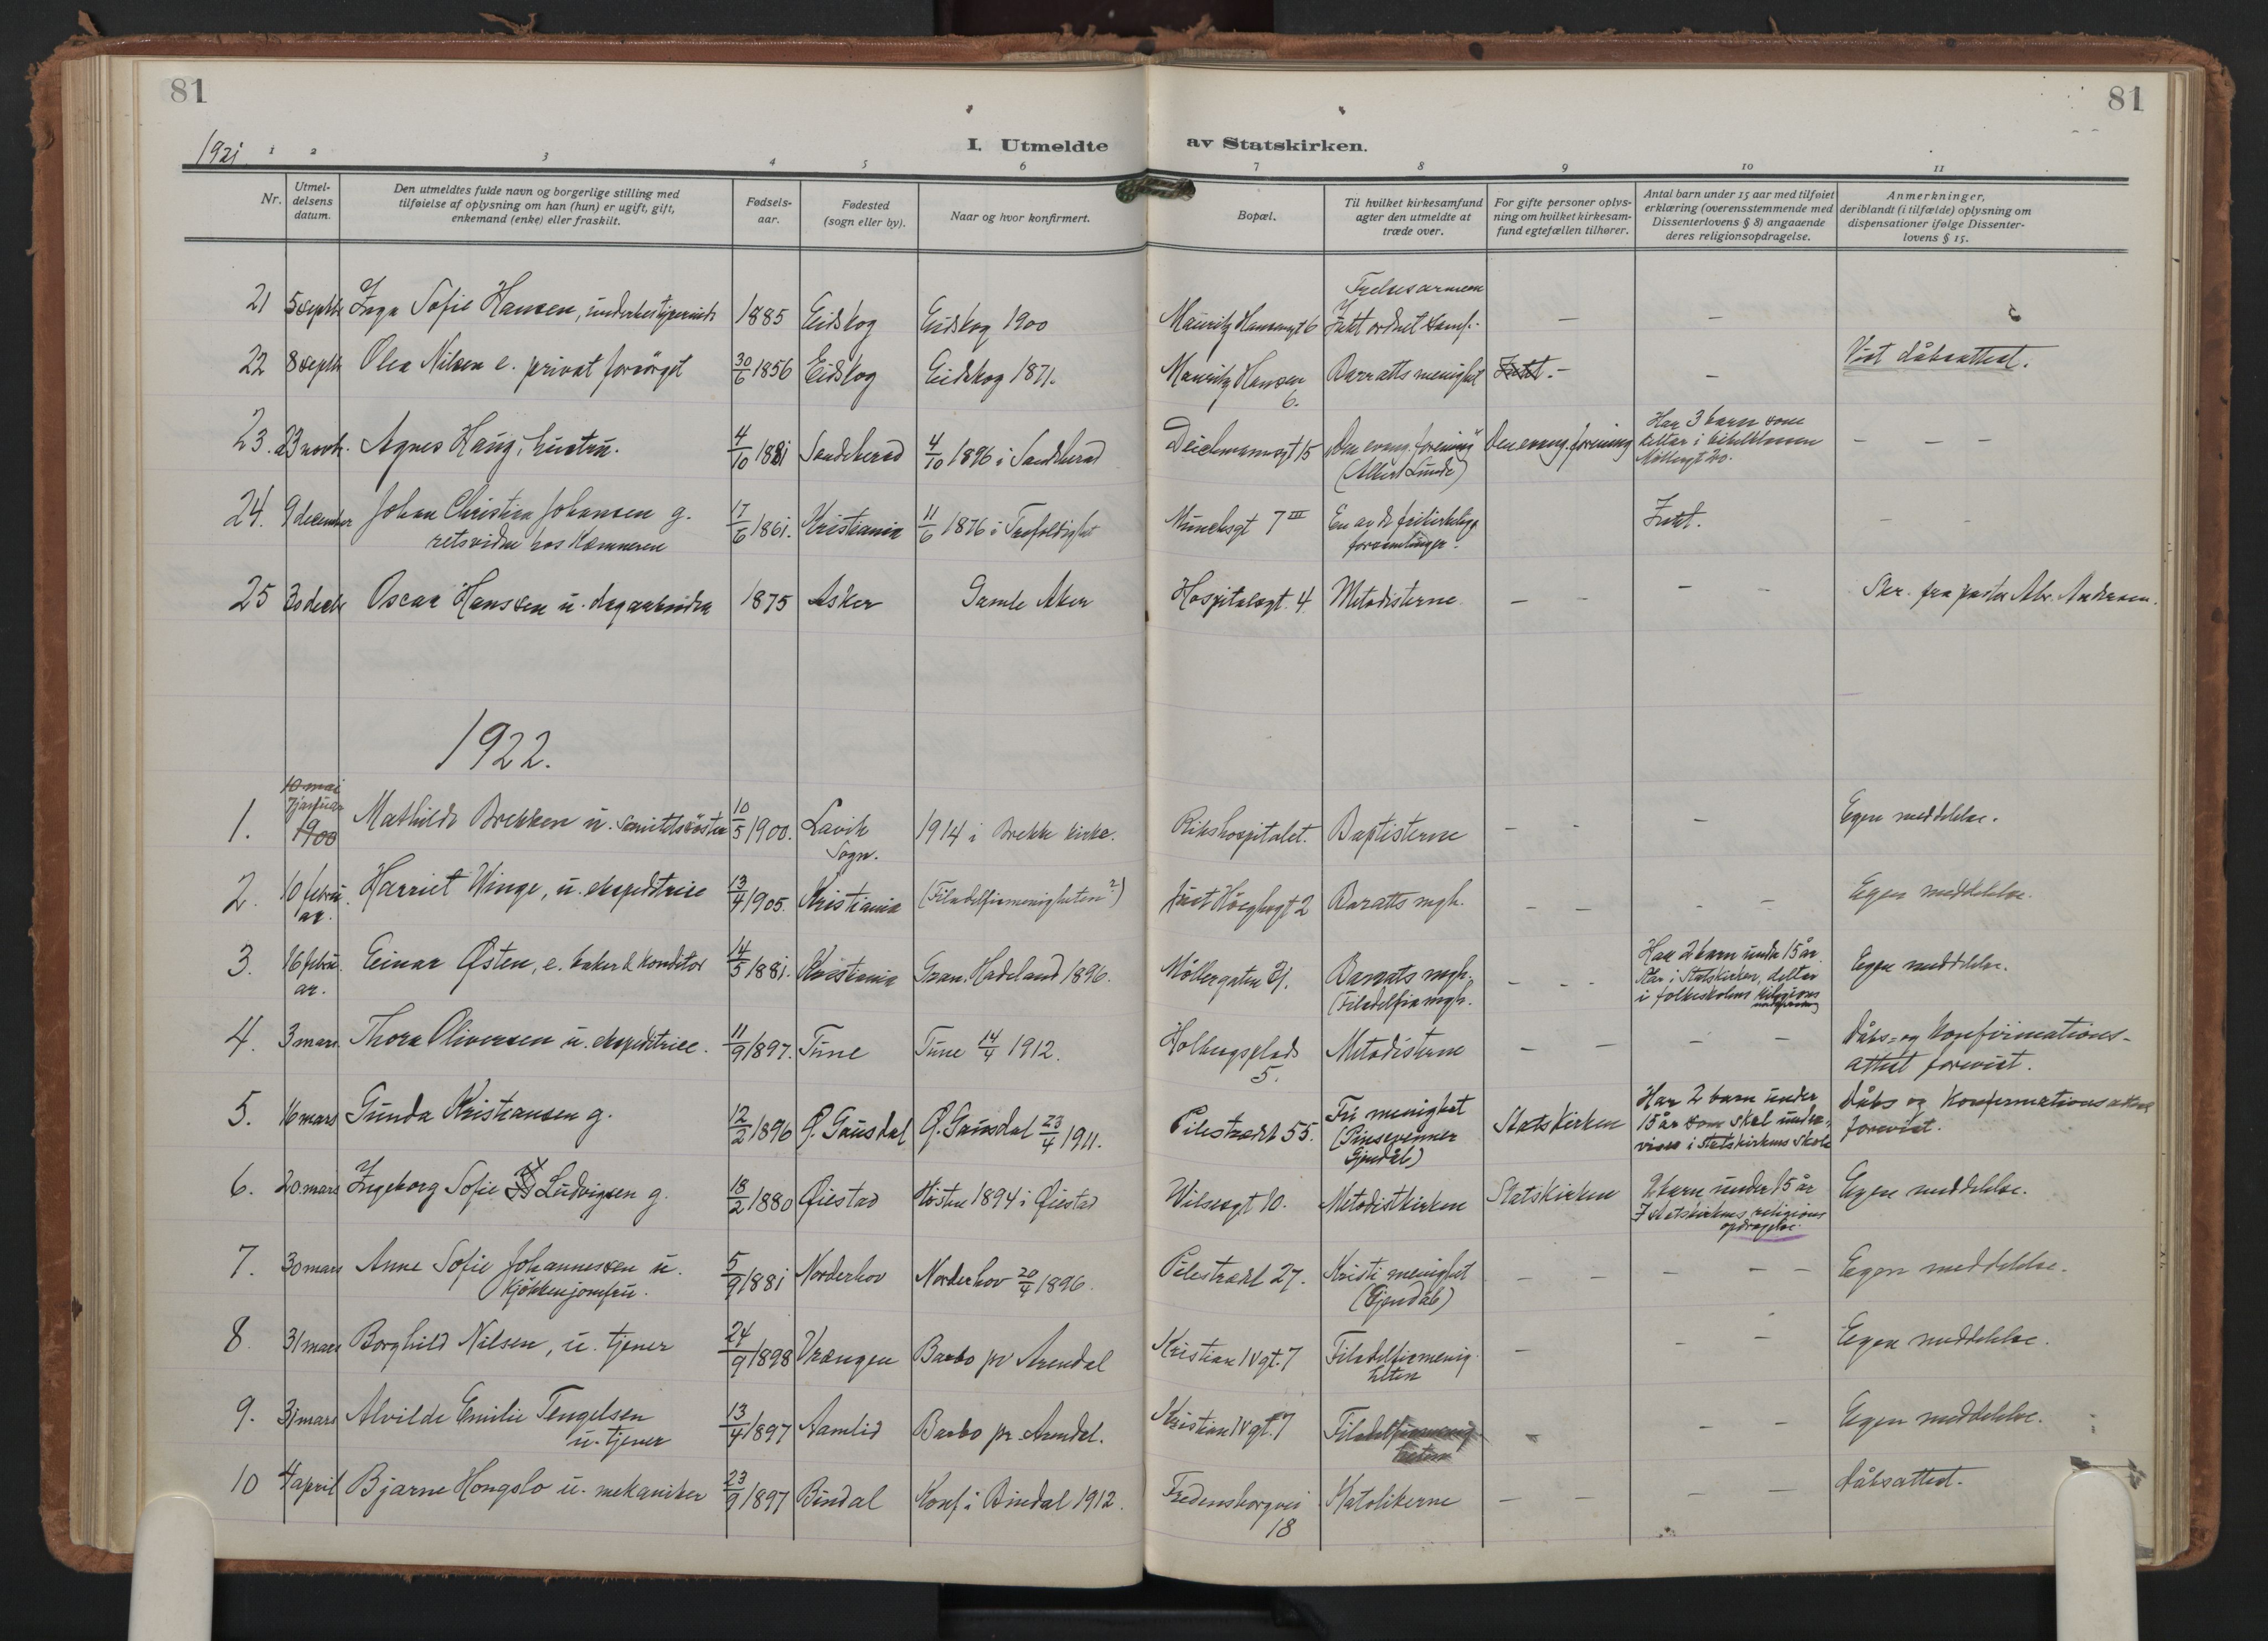 81
81
1921
I. Utmeldte av Statskirken.
1 2 3 4 5 6 7 8 9 10 11
Nr.
Utmel-
delsens
datum.
Den utmeldtes fulde navn og borgerlige stilling med
tilføielse af oplysning om han (hun) er ugift, gift,
enkemand (enke) eller fraskilt.
Fødsels-
aar.
Fødested
(sogn eller by).
Naar og hvor konfirmert.
Bopæl.
Til hvilket kirkesamfund
agter den utmeldte at
træde over.
For gifte personer oplys-
ning om hvilket kirkesam-
fund egtefællen tilhører.
Antal barn under 15 aar med tilføiet
erklæring (overensstemmende med
Dissenterlovens § 8) angaaende
deres religionsopdragelse.
Anmerkninger,
deriblandt (i tilfælde) oplysning om
dispensationer ifølge Dissenter-
lovens § 15.
Frelsesarmeen
21 5 septbr Inga Sofie Hansen, 1885 Eidskog Eidskog 1900 Mauritz Hansensgt 6 Intet ordnet samf. — —
22 8 septbr Olea Nilsen e. privat forsørget 30/6 1856 Eidskog Eidskog 1871. Mauritz Hansen Barratts menighet Intet. — — Vist dåbsattest.
6.
Har 3 barn som
23. 23 novbr. Agnes Haug, hustru. 4/10 1881 Sandeherad 4/10 1896 i Sandeherad Deichmannsgt 15 "Den evang. forening" Den evang. forening deltar i bibelklassen — — —
(Albert Lunde) Møllergt 20.
24. 9 december Johan Christian Johansen g. 17/6 1861. Kristiania 11/6 1876 i Trefoldighet Munchsgt 7 III En av de frikirkelige Intet. — —
retsvidne hos Kæmneren forsamlinger.
25 30 decbr Oscar Hanssen u. dagarbeider 1875 Asker Gamle Aker Hospitalsgt. 4. Metodisterne — — — — Skr. fra pastor Abr. Andersen.
1922.
10 mai
7 januar
1. 1900 Mathilde Brekken u. sanitetssøster 10/5 1900. Lavik 1914 i Brekke kirke. Rikshospitalet. Baptisterne — — — Egen meddelelse.
Sogn.
2. 10 febru- Harriet Winge, u. ekspeditrice 13/4 1905. Kristiania (Filadelfiamenigheten?) Just Höeghsgt 2 Baratts mgh. — — — — Egen meddelelse.
ar.
Har 2 barn under 15 år.
3. 16 febru- Einar Østen, e. baker & konditor 14/5 1881. Kristiania Gran. Hadeland 1896. Møllergaten 31. Barrats mgh. — — — Står i Statskirken, deltar Egen meddelelse.
ar. (Filadelfia mgh. i folkeskolens religions
undervisning
4. 3 mars. Thora Oliversen u. ekspeditrice. 11/9 1897. Tune Tune 14/4 1912. Holbergsplads Metodisterne — — — — Dåbs- og Konfirmations-
5. attest forevist.
5. 16 mars Gunda Kristiansen g. 12/2 1896 Ø. Gausdal Ø. Gausdal 23/4 1911. Pilestrædt 55. Fri menighet Statskirken Har 2 barn under Dåbs og Konfirmationsattest
(Pinsevenner 15 år som skal under- forevist.
Gjendåb) vises i Statskirkens skole
6. 20 mars Ingeborg Sofie Ludvigsen g. 18/2 1880 Øiestad Høsten 1894 i Øiestad Wilsesgt 10. Metodistkirken Statskirken 2 barn under 15 år Egen meddelelse.
I statskirkens religions
opdragelse.
7. 30 mars Anne Sofie Johannessen u. 5/9 1881 Norderhov Norderhov 20/4 1896. Pilestrædt 27. Kristi menighet — — — — — Egen meddelelse.
Kjøkkenjomfru. (Gjendåb)
8 31 mars Borghild Nilsen, u. tjener 24/9 1898 Vrangen Barbo pr Arendal Kristian IVgt. 7 Filadelfiamenig- — — — Egen meddelelse.
heten
9. 31 mars Alvilde Emilie Tengelsen 13/4 1897 Aamlid Barbo pr. Arendal. Kristian IVgt. 7 Filadelfiamenig — — — Egen meddelelse.
u. tjener heten
10 4 april Bjarne Hongslo u. mekaniker 23/9 1897 Bindal Konf i Bindal 1912. Fredensborgvei Katolikerne — — — — Dåbsattest.
18